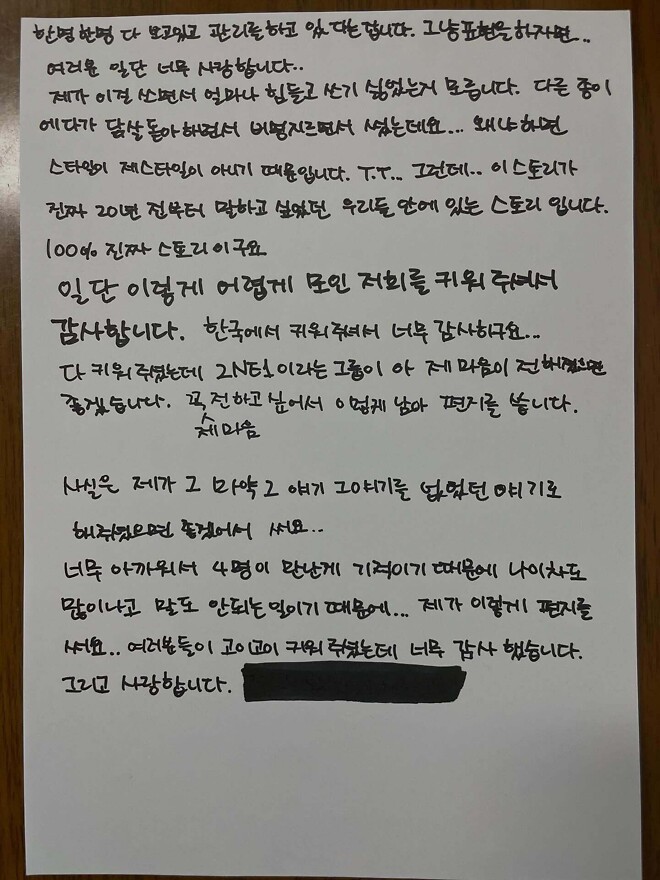 한명 한명 다 보고있고 관리를 하고 있 다는 겁니다. 그냥 표현을 하자면..
여러분 일단 너무 사랑합니다..
제가 이걸 쓰면서 얼마나 힘들고 쓰기 싫었는지 모릅니다. 다른 종이
에다가 닭살 돋아 하면서 비명지르면서 썼는데요... 왜냐 하면
스타일이 제스타일이 아니기 때문입니다. T.T... 그런데.. 이 스토리가
진짜 20년 전부터 말하고 싶었던 우리들 안에 있는 스토리 입니다.
100% 진짜 스토리 이구요
일단 이렇게 어렵게 모인 저희를 키워 주셔서
감사합니다. 한국에서 키워주셔서 너무 감사하구요...
다 키워 주셨는데 2NE1 이라는 그룹이 아 제 마음이 전해졌으면
좋겠습니다. 꼭 전하고 싶어서 이렇게 남아 편지를 씁니다.
제 마음
사실은 제가 그 마약 그 얘기 그 이야기를 없었던 얘기로
해주셨으면 좋겠어서 써요..
너무 아까워서 4명이 만난게 기적이기 때문에 나이차도
많이나고 말도 안되는 일이기 때문에... 제가 이렇게 편지를
써요.. 여러분들이 고이고이 키워 주셨는데 너무 감사 했습니다.
그리고 사랑합니다.